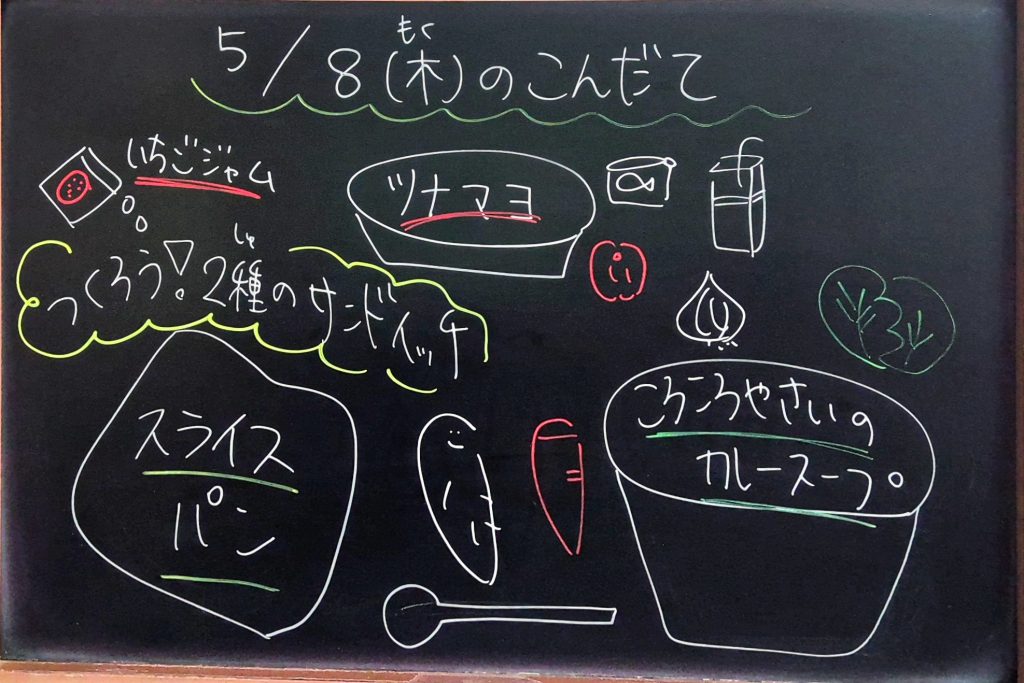 もく
5/8(木)のこんだて
いちごジャム
ツナマヨ
しゅ
つくろう!2種のサンドイッチ
スライス
パン
ころころやさいの
カレースープ